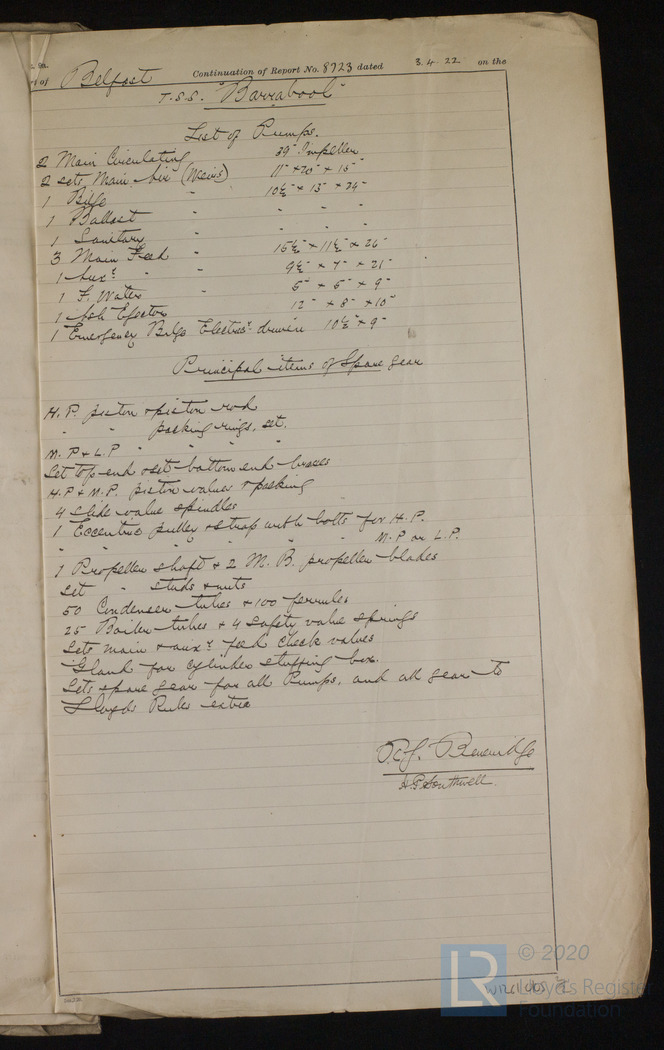 Belfast Continuation of Report No. 8723 dated 3.4.22 on the
T.S.S. "Barrabool"
List of Pumps.
2 Main Circulating 39" Impeller
2 sets Main Air (Weirs) 11" + 20" + 15"
1 Bilge " 10½" + 13" + 24"
1 Ballast " " " "
1 Sanitary " " " "
3 Main Feed " 15½" + 11½" + 26"
1 Auxy " " 9½" + 7" + 21"
1 F. Water " 5" + 5" + 9"
1 Ash Ejector 12" + 8" + 10"
1 Emergency Bilge Electricy driven 10½" + 9"
Principal items of Spare gear
H.P. piston & piston rod
" " packing rings, set.
M.P & L.P " " " "
Set top end & set bottom end braces
H.P & M.P. piston valves & packing
4 slide valve spindles
1 Eccentric pulley & strap with bolts for H.P.
" " " " " " M.P or L.P.
1 Propeller shaft & 2 M.B. propeller blades
Set " studs & nuts
50 Condenser tubes & 100 ferrules
25 Boiler tubes & 4 safety valve springs
Sets main & auxy feed check valves
Gland for cylinder stuffing box.
Sets spare gear for all Pumps, and all gear to
Lloyds Rules extra
R.J. Beveridge
H.P. Southwell.
© 2020
LR Lloyd's Register
Foundation